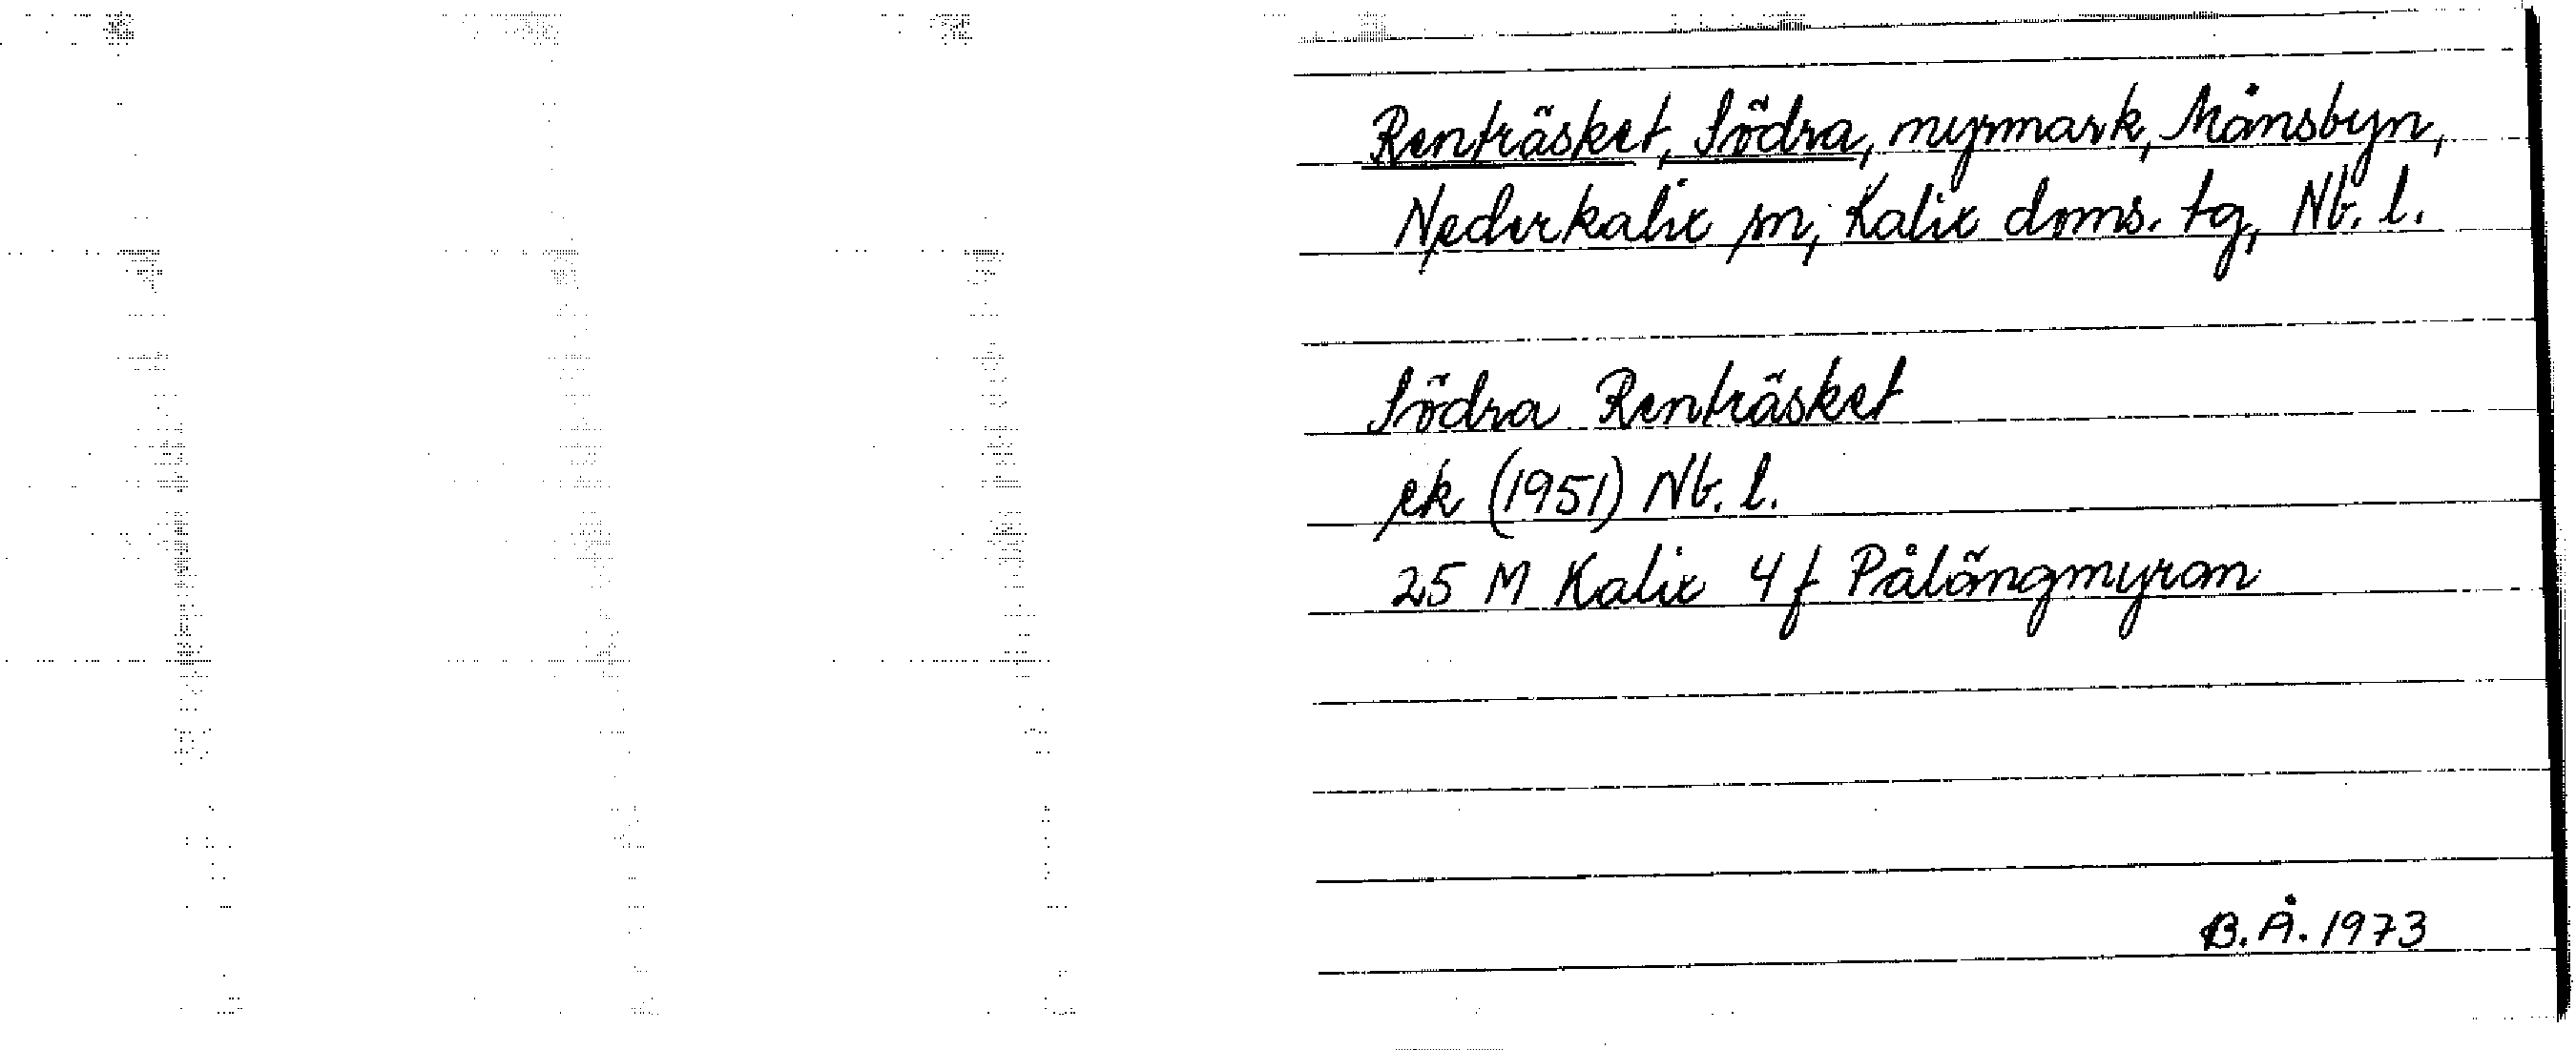 Renträsket, Södra, myrmark, Månsbyn,
Nederkalix sn, Kalix doms. tg, Nb. l.
Södra Renträsket
ek (1951) Nb. l.
25 M Kalix 4 f Pålängmyran
B.Å. 1973